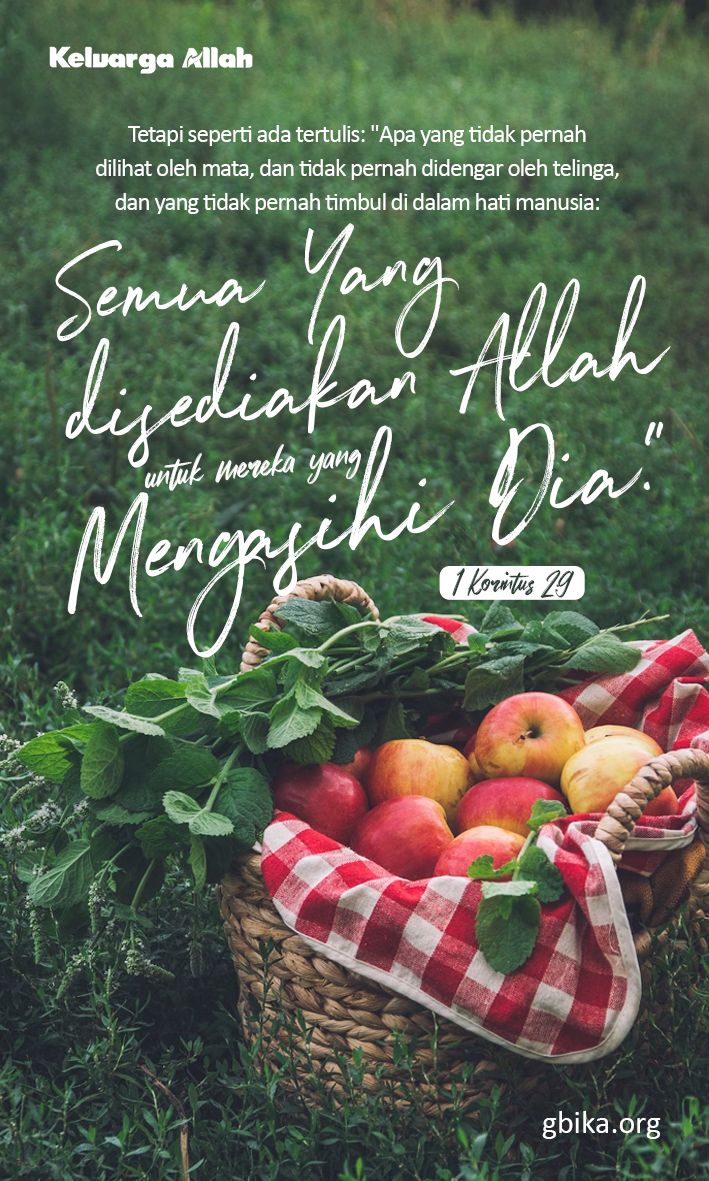 Keluarga Allah
Tetapi seperti ada tertulis: "Apa yang tidak pernah
dilihat oleh mata, dan tidak pernah didengar oleh telinga,
dan yang tidak pernah timbul di dalam hati manusia:
Semua Yang
disediakan Allah
untuk mereka yang
Mengasihi Dia."
1 Korintus 29
gbika.org